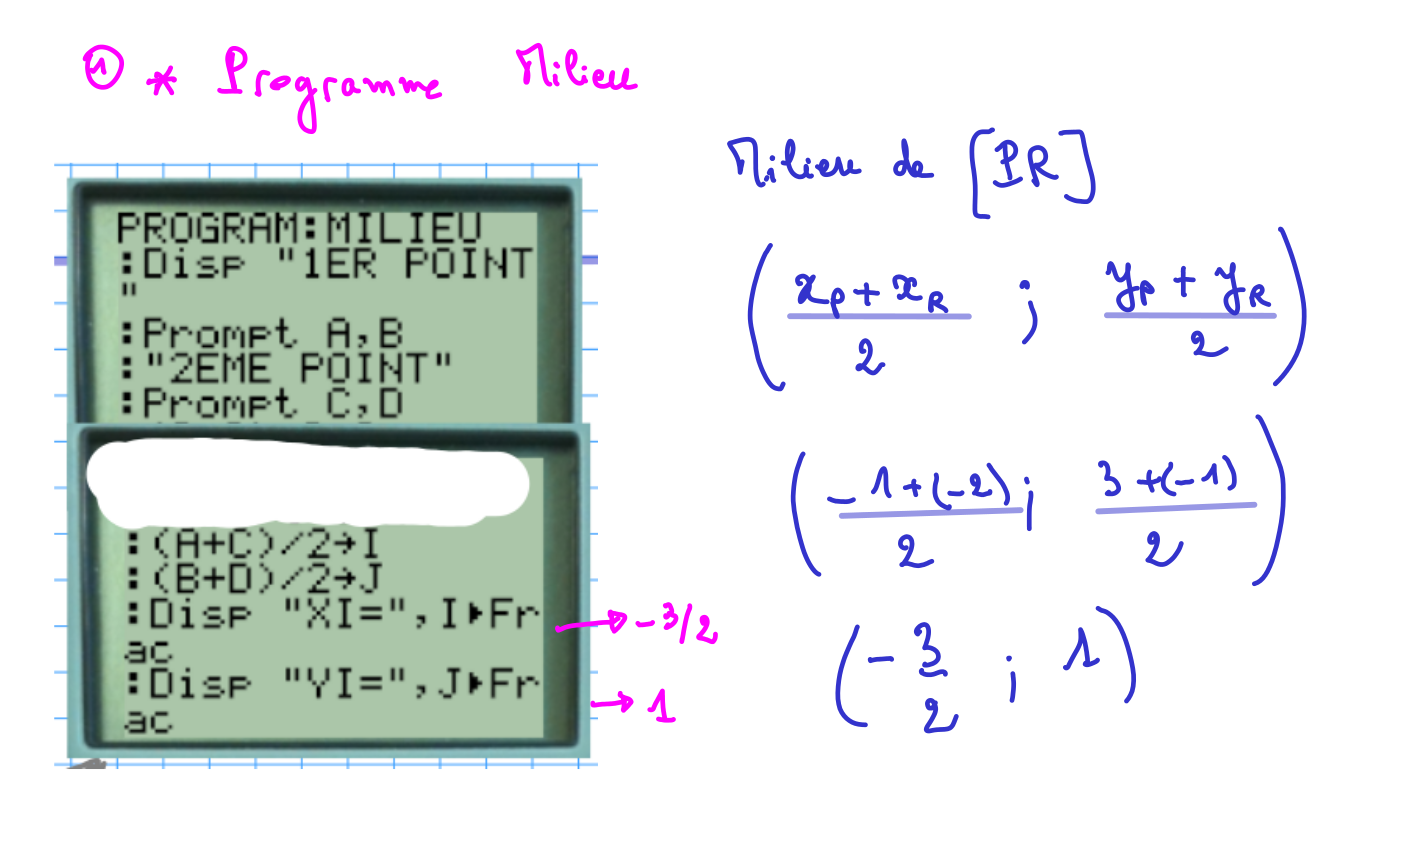 ① * Programme Milieu
PROGRAM:MILIEU
:Disp "1ER POINT
"
:Prompt A,B
:"2EME POINT"
:Prompt C,D
:(A+C)/2→I
:(B+D)/2→J
:Disp "XI=",I▶Fr
ac
:Disp "YI=",J▶Fr
ac
→ -3/2
→ 1
Milieu de [PR]
(
x_P + x_R
2
;
y_P + y_R
2
)
(
-1+(-2)
2
;
3+(-1)
2
)
(
-3
2
; 1
)